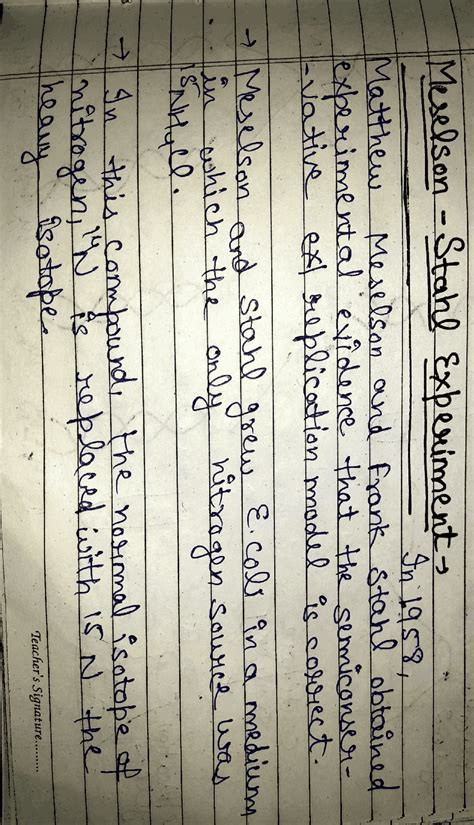 Meselson - Stahl Experiment →
In 1958,
Matthew Meselson and Frank Stahl obtained
experimental evidence that the semiconser-
-vative ex/ replication model is correct.
→ Meselson and Stahl grew E.coli in a medium
in which the only nitrogen source was
15NH4Cl.
→ In this compound, the normal isotope of
nitrogen, 14N is replaced with 15 N the
heavy isotope.
Teacher's Signature.........